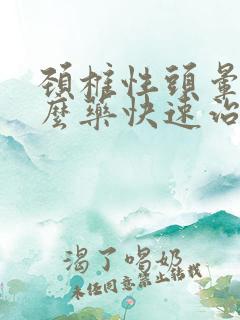 頚椎性頭暈
麼藥快速治
渴了喝奶
未任同意禁止轉載